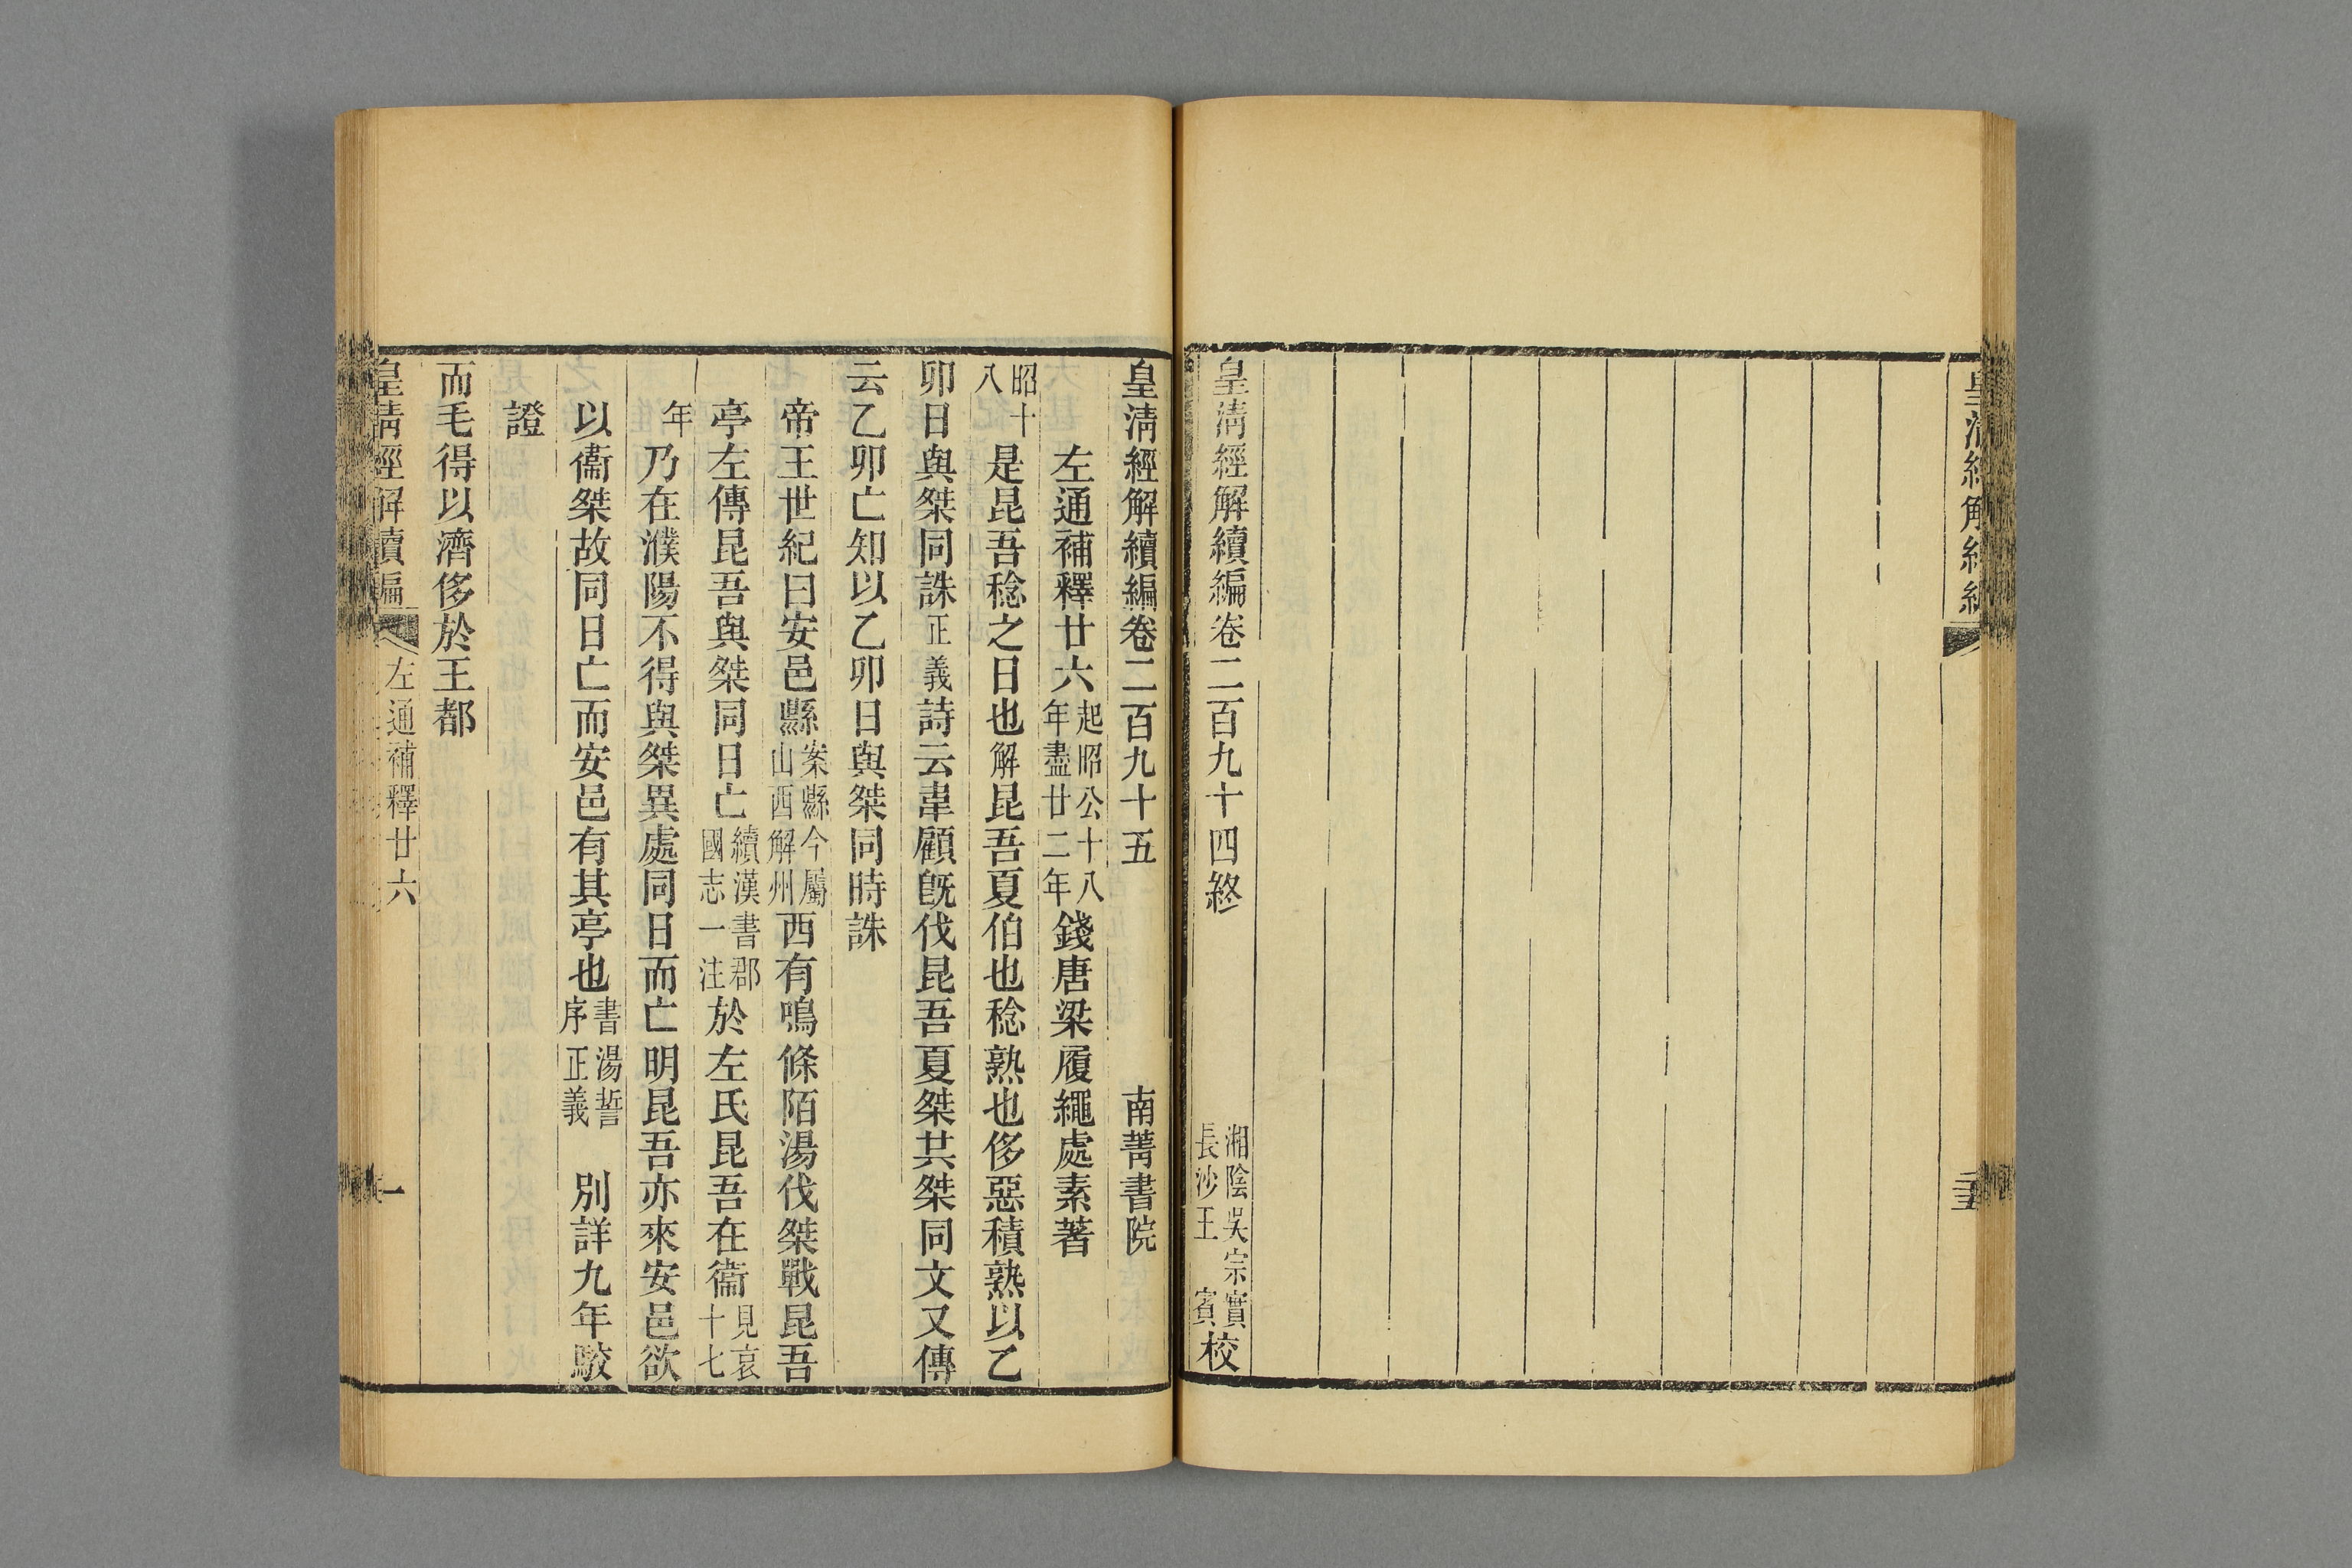 皇清經解續編卷二百九十四終
湘陰吳宗實
長沙王 賓校
皇清經解續編卷二百九十五 南菁書院
左通補釋廿六起昭公十八年盡廿二年錢唐梁履繩處素著
昭十八是昆吾稔之日也解昆吾夏伯也稔熟也侈惡積熟以乙
卯日與桀同誅正義詩云韋顧旣伐昆吾夏桀共桀同文又傳
云乙卯亡知以乙卯日與桀同時誅
帝王世紀曰安邑縣案縣今屬山西解州西有鳴條陌湯伐桀戰昆吾
亭左傳昆吾與桀同日亡續漢書郡國志一注於左氏昆吾在衞見哀十七
年乃在濮陽不得與桀異處同日而亡明昆吾亦來安邑欲
以衞桀故同日亡而安邑有其亭也書湯誓序正義 別詳九年駮
證
而毛得以濟侈於王都
皇清經解續編 左通補釋廿六 一